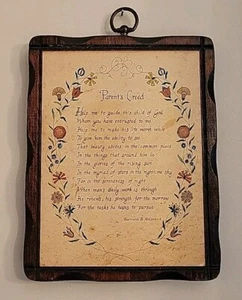 Parent's Creed
Help me to guide this child of God
Whom you have entrusted to me
Help me to make his life worth while
To give him the ability to see
That beauty abides in the common place
In the things that around him lie
In the glories of the rising sun
In the myriad of stars in the nighttime sky
For in the loveliness of night
When man's daily work is through
He renews his strength for the morrow
For the tasks he hopes to pursue